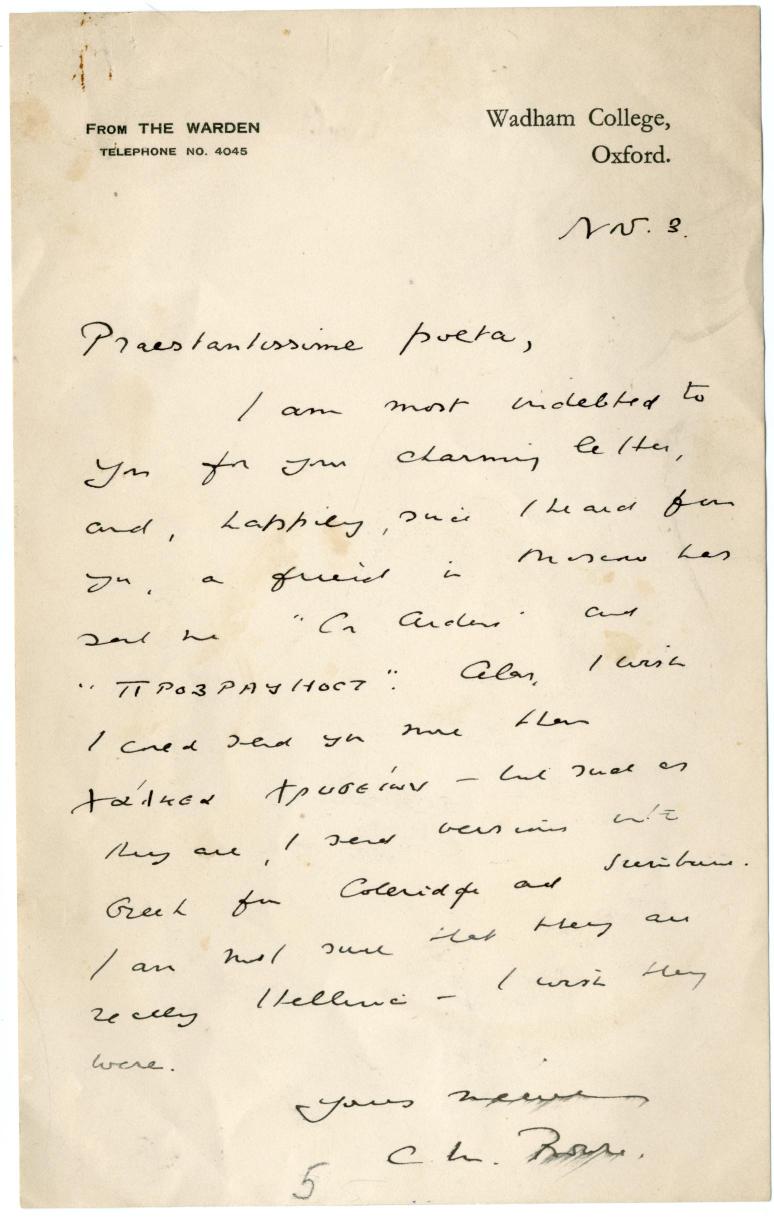 FROM THE WARDEN
TELEPHONE NO. 4045
Wadham College,
Oxford.
Nov. 3.
Praestantissime poeta,
I am most indebted to
you for your charming letter,
and, happily, since I heard from
you, a friend in Moscow has
sent me "Cor Ardens" and
"ПРОЗРАЧНОСТ". Alas, I wish
I could send you more than
χάλκεα χρυσείων – but such as
they are, I send versions into
Greek from Coleridge and Swinburne.
I am not sure that they are
really Hellenic – I wish they
were.
Yours
C. M. Bowra.
5